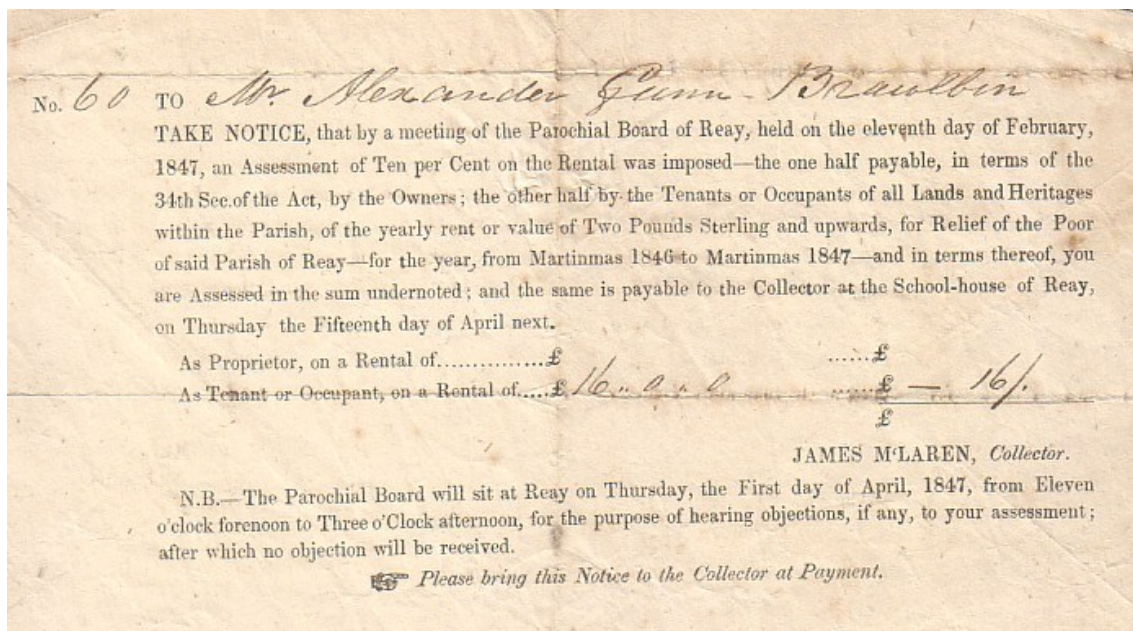 No. 60 TO Mr. Alexander Gunn - Brawlbin
TAKE NOTICE, that by a meeting of the Parochial Board of Reay, held on the eleventh day of February,
1847, an Assessment of Ten per Cent on the Rental was imposed—the one half payable, in terms of the
34th Sec.of the Act, by the Owners; the other half by the Tenants or Occupants of all Lands and Heritages
within the Parish, of the yearly rent or value of Two Pounds Sterling and upwards, for Relief of the Poor
of said Parish of Reay—for the year, from Martinmas 1846 to Martinmas 1847—and in terms thereof, you
are Assessed in the sum undernoted; and the same is payable to the Collector at the School-house of Reay,
on Thursday the Fifteenth day of April next.
As Proprietor, on a Rental of...............£ ......£
As Tenant or Occupant, on a Rental of.....£ 16 " 0 " 0 ......£ — 16/.
£
JAMES M‘LAREN, Collector.
N.B.—The Parochial Board will sit at Reay on Thursday, the First day of April, 1847, from Eleven
o'clock forenoon to Three o'Clock afternoon, for the purpose of hearing objections, if any, to your assessment;
after which no objection will be received.
☞ Please bring this Notice to the Collector at Payment.